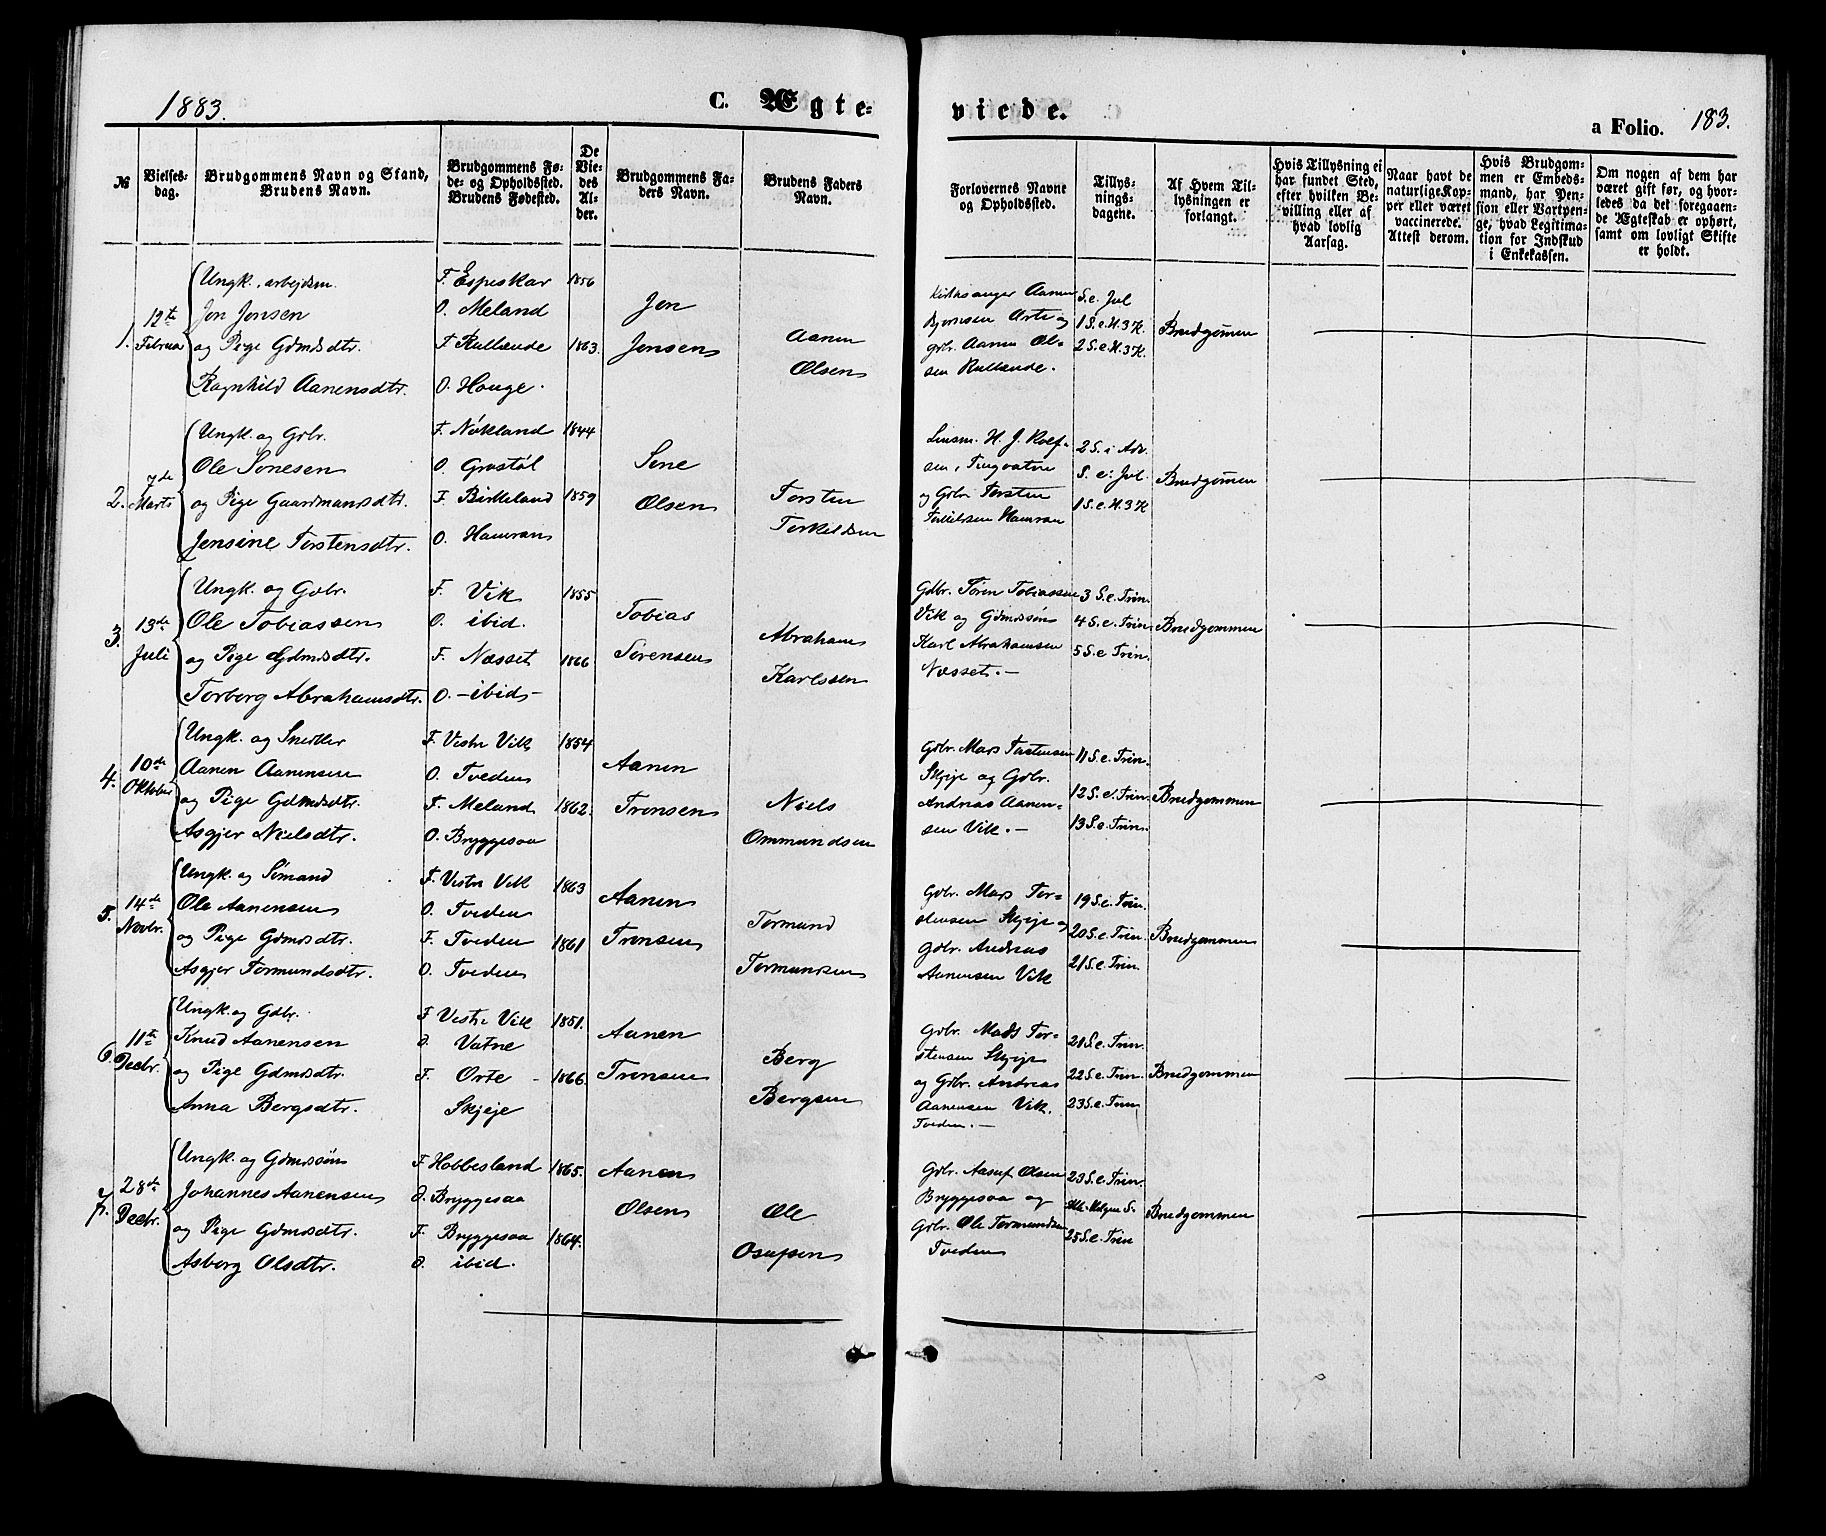 1883.
C. Ægte-
viede.
a Folio. 183.
№
Vielses-
dag.
Brudgommens Navn og Stand,
Brudens Navn.
Brudgommens Fø-
de- og Opholdssted.
Brudens Fødested.
De
Vie-
des
Al-
der.
Brudgommens Fa-
ders Navn.
Brudens Faders
Navn.
Forlovernes Navne
og Opholdssted.
Tillys-
nings-
dagene.
Af Hvem Til-
lysningen er
forlangt.
Hvis Tillysning ei
har fundet Sted,
efter hvilken Be-
villing eller af
hvad lovlig
Aarsag.
Naar havt de
naturlige Kop-
per eller været
vaccinerede.
Attest derom.
Hvis Brudgom-
men er Embeds-
mand, har Pen-
sion eller Vartpen-
ge, hvad Legitima-
tion for Indskud
i Enkekassen.
Om nogen af dem har
været gift før, og hvor-
ledes da det foregaaen-
de Ægteskab er ophørt,
samt om lovligt Skifte
er holdt.
1.
12te
Februar
Ungk. arbejdsm.
Jon Jonsen
og Pige Gdmdsdtr.
Ragnhild Aanensdtr.
F. Espeskar
O. Meland
F. Rullende
O. Houge.
1856
1863.
Jon
Jensen
Aanen
Olsen
Kirkesanger Aanen
Bjørnsen Orte og
gbr. Aanen Ol-
sen Rullende.
S. e. Jul
1 S. e. H. 3 K.
2 S. e. H. 3 K.
Brudgomen
2.
7de
Marts
Ungk. og Gbr.
Ole Sønesen
og Pige Gaardmansdtr.
Jensine Torstensdtr.
F. Nökland
O. Grostøl
F. Birkeland
O. Hamran
1844
1859
Søne
Olsen
Torsten
Torkeldsen
Lensm. H. J. Roef-
sen, Tingvatne
og Gbr. Torsten
Torkildsen Hamran
2 S. i Adv.
S. e. Jul.
1 S. e. H. 3 K
Brudgomen
3.
13de
Juli
Ungk. og Gdbr.
Ole Tobiassen
og Pige Gdmdsdtr.
Torborg Abrahamsdtr.
F. Vik
O. ibid.
F. Næsset
O. - ibid -
1855
1866
Tobias
Sørensen
Abraham
Karlssen
Gdbr. Sören Tobiassen
Vik og Gdmdssøn
Karl Abrahamsen
Næsset. -
3 S. e. Trin.
4 S. e. Trin.
5 S. e Trin.
Brudgommen
4.
10de
Oktober
Ungk. og Snedker
Aanen Aanensen
og Pige Gdmdsdtr.
Asgjer Nielsdtr.
F. Vestre Vik
O. Tveden
F. Meland
O. Bryggesaa
1854
1862.
Aanen
Trønsen
Niels
Ommundsen
Gdbr. Mads Tostensen
Skjeje og Gdbr.
Andreas Aanen-
sen Vik. -
11 S. e. Trin.
12 S. e. Trin.
13 S. e. Trin.
Brudgommen
5.
14de
Novbr.
Ungk. og Sømand
Ole Aanensen
og Pige Gdmdsdtr.
Asgjer Tormundsdtr.
F. Vestre Vik
O. Tveden
F. Tveden
O. Tveden
1863
1861
Aanen
Trønsen
Tormund
Tormundsen
Gdbr. Mads Tor-
stensen Skjeje og
Gdbr. Andreas
Aanensen Vik
19 S. e. Trin.
20 S. e. Trin.
21 S. e. Trin.
Brudgommen
6.
11te
Decbr.
Ungk. og Gdbr.
Knud Aanensen
og Pige Gdmdsdtr.
Anna Bergsdtr.
F. Vestre Vik
O. Vatne
F. Orte -
Skjeje
1851.
1866.
Aanen
Trønsen
Berg
Bergsen
Gdbr. Mads Tor-
stensen Skjeje
og Gdbr. Andreas
Aanensen Vik.
Tveden. -
21 S. e. Trin.
22 S. e. Trin.
23 S. e. Trin
Brudgommen
7.
28de
Decbr.
Ungk. og Gdmdssøn
Johannes Aanensen
og Pige Gdmdsdtr.
Asborg Olsdtr.
F. Hobbesland
O. Bryggesaa
F. Bryggesaa
O. ibid.
1865.
1864.
Aanen
Olsen
Ole
Osufsen
Gdbr. Aasuf Olsen
Bryggesaa og
Gdbr. Ole Tormundsen
Tveden
23 S. e. Trin.
Alle Helgens S.
25 S. e. Trin
Brudgommen